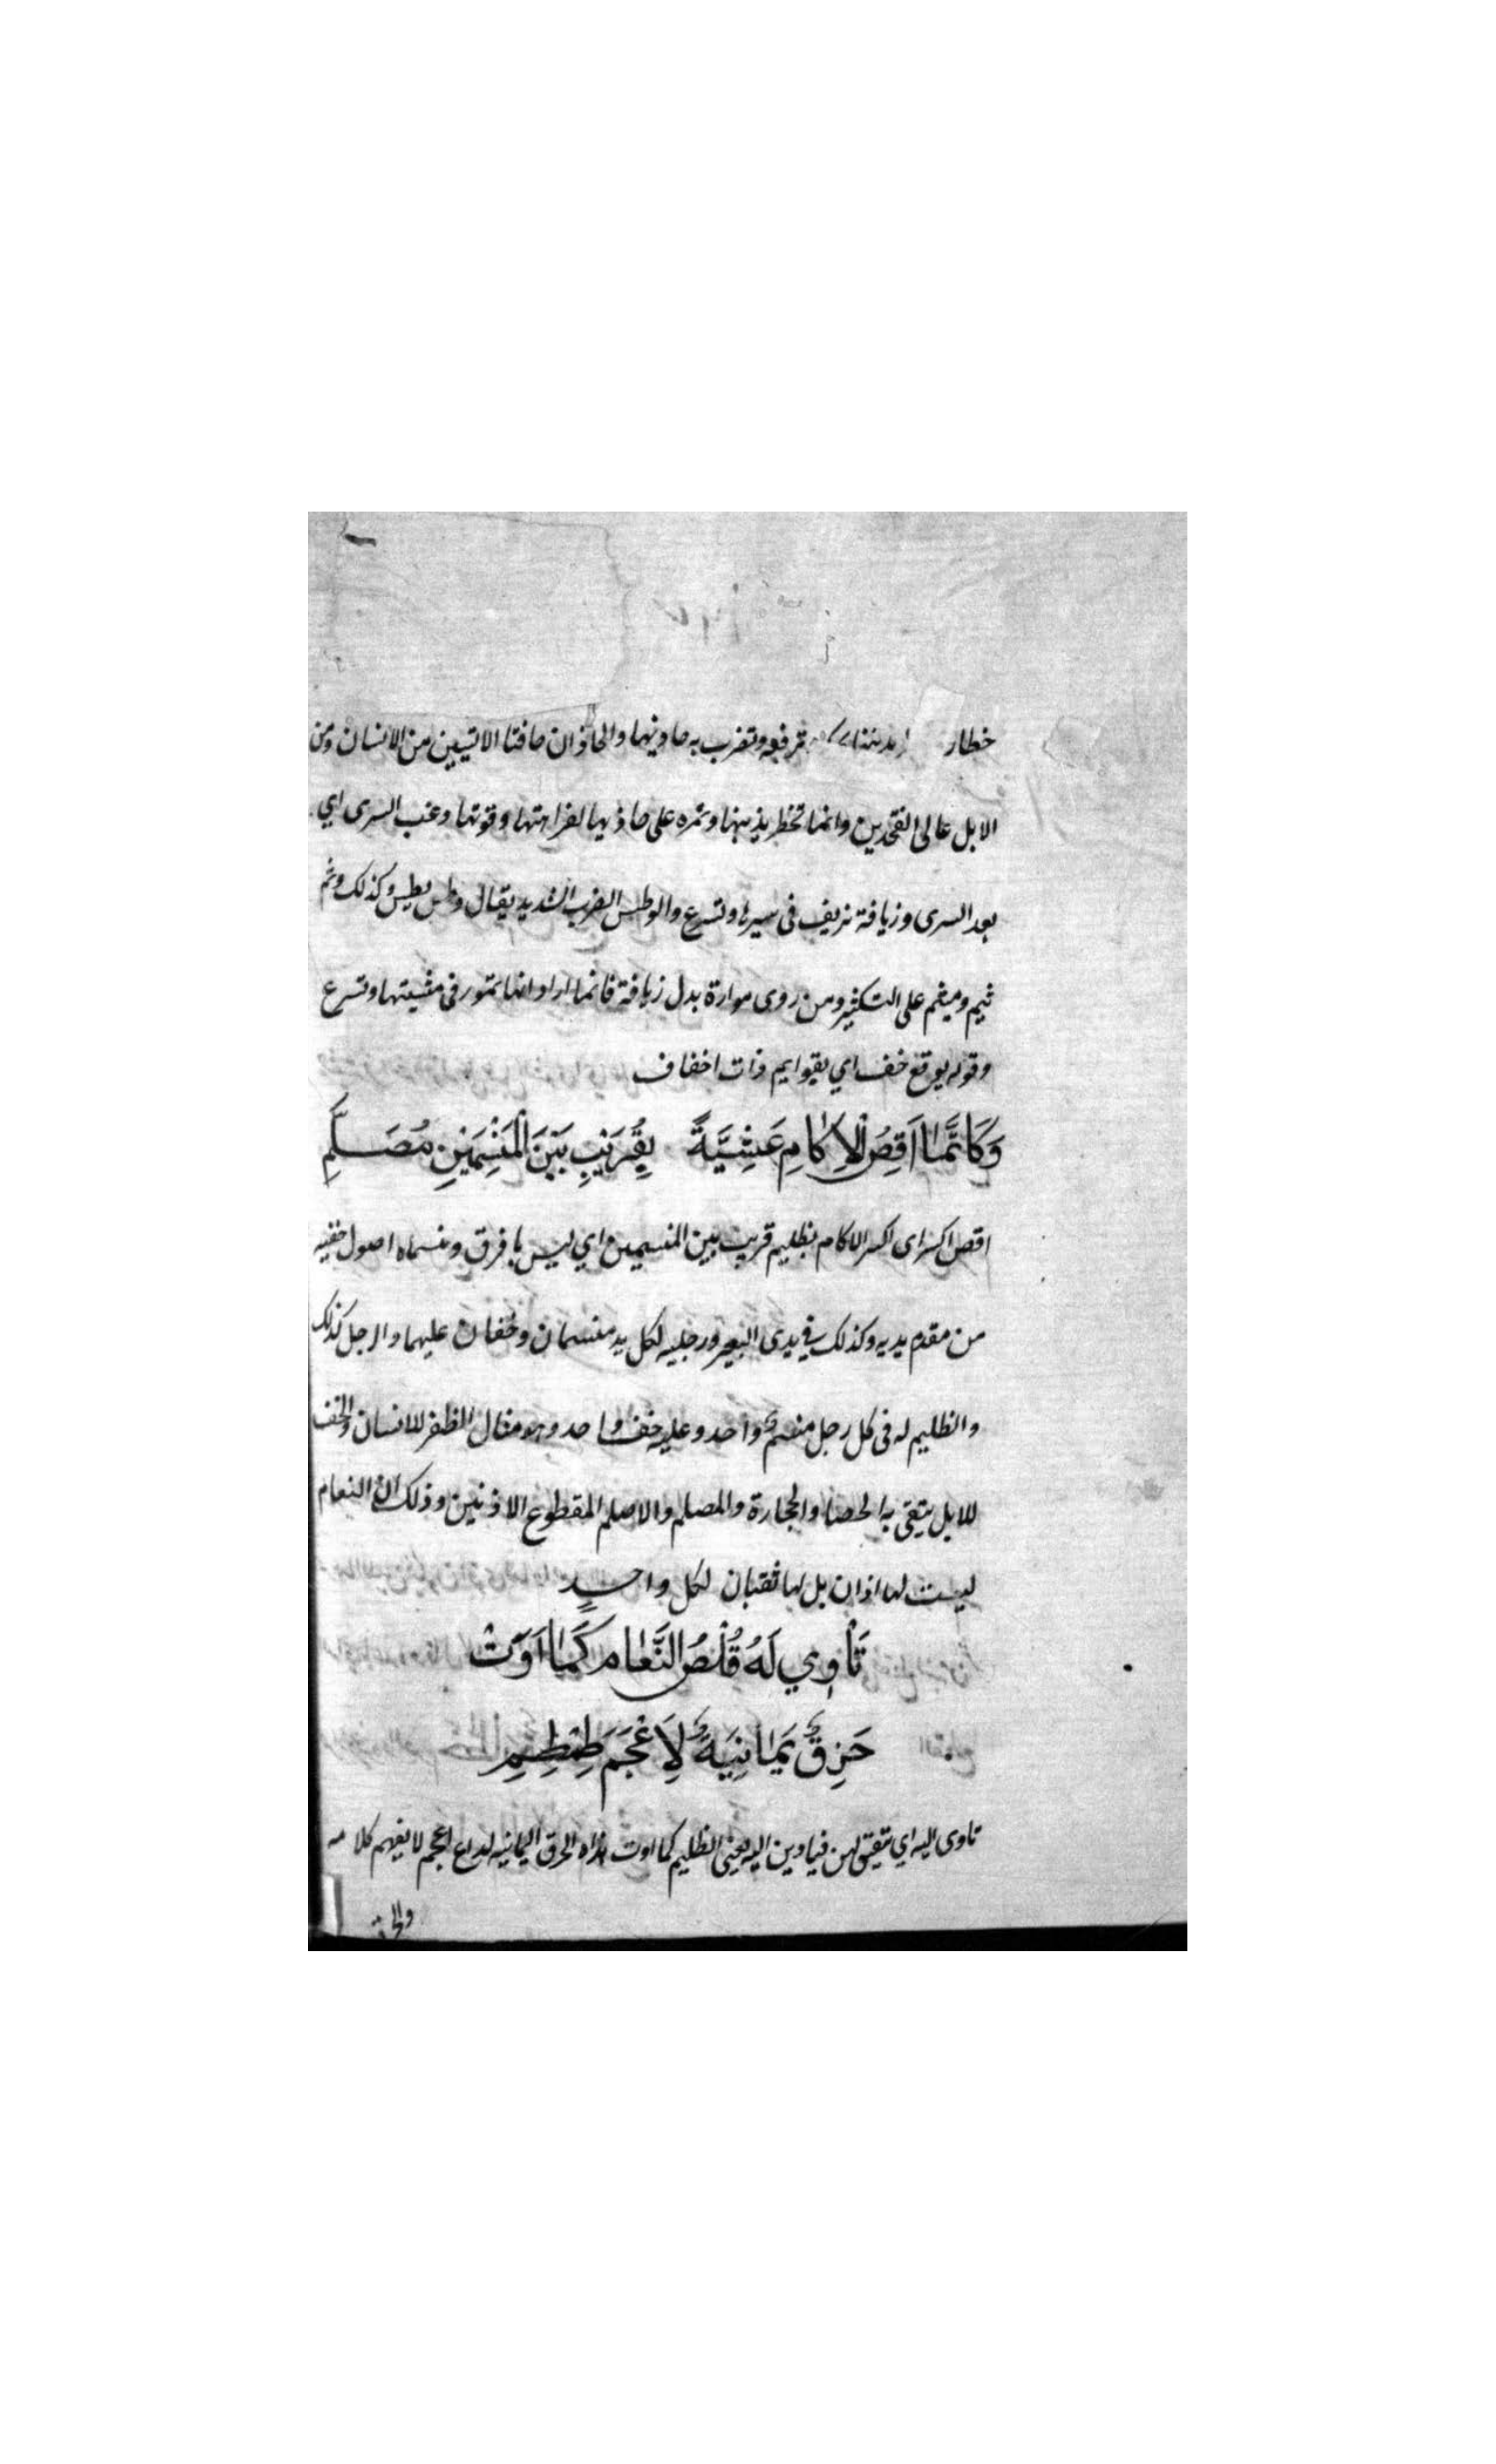 خطار ترفعه وتضرب به حاذيها والحاذان حافتا الاليتين من الانسان ومن
الابل عالى الفخذين وانما تخطر بذنبها وتمره على حاذيها لفراهتها وقوتها وغب السرى اي
بعد السرى وزيافة تزيف فى سيرها وتسرع والوطس الضرب الشديد يقال وطس يطس وكذلك وثم
يثم وميثم على التكثير ومن روى موارة بدل زيافة فانما اراد انها تمور فى مشيتها وتسرع
وقوله بوقع خف اي بقوايم ذات اخفاف
وَكَاَنَّمَا اَقِصُ الْاِكَامِ عَشِيَّةً بِقُرَيْبِ بَيْنَ الْمَنْسِمَيْنِ مُصَلَّمِ
اقص اكسر اى اكسر الاكام بظليم قريب بين المنسمين اي ليس بافرق ومنسماه اصول خفيه
من مقدم يديه وكذلك في يدى البعير ورجليه لكل يد منسمان وخفان عليهما والرجل كذلك
والظليم له فى كل رجل منسم واحد وعليه خف واحد وهو مثال الظفر للانسان والخف
للابل يتقى به الحصا والحجارة والمصلم والاصلم المقطوع الاذنين وذلك ان النعام
ليست لها اذان بل لها ثقبان لكل واحد
تَاْوِي لَهُ قُلُصُ النَّعَامِ كَمَا اَوَتْ
حَزِقٌ يَمَانِيَةٌ لِاَعْجَمَ طِمْطِمِ
تاوى اليه اي يتقيق لهن فياوين اليه يعنى الظليم كما اوت هذه الحزق اليمانيه لداع اعجم لا يفهم كلامه